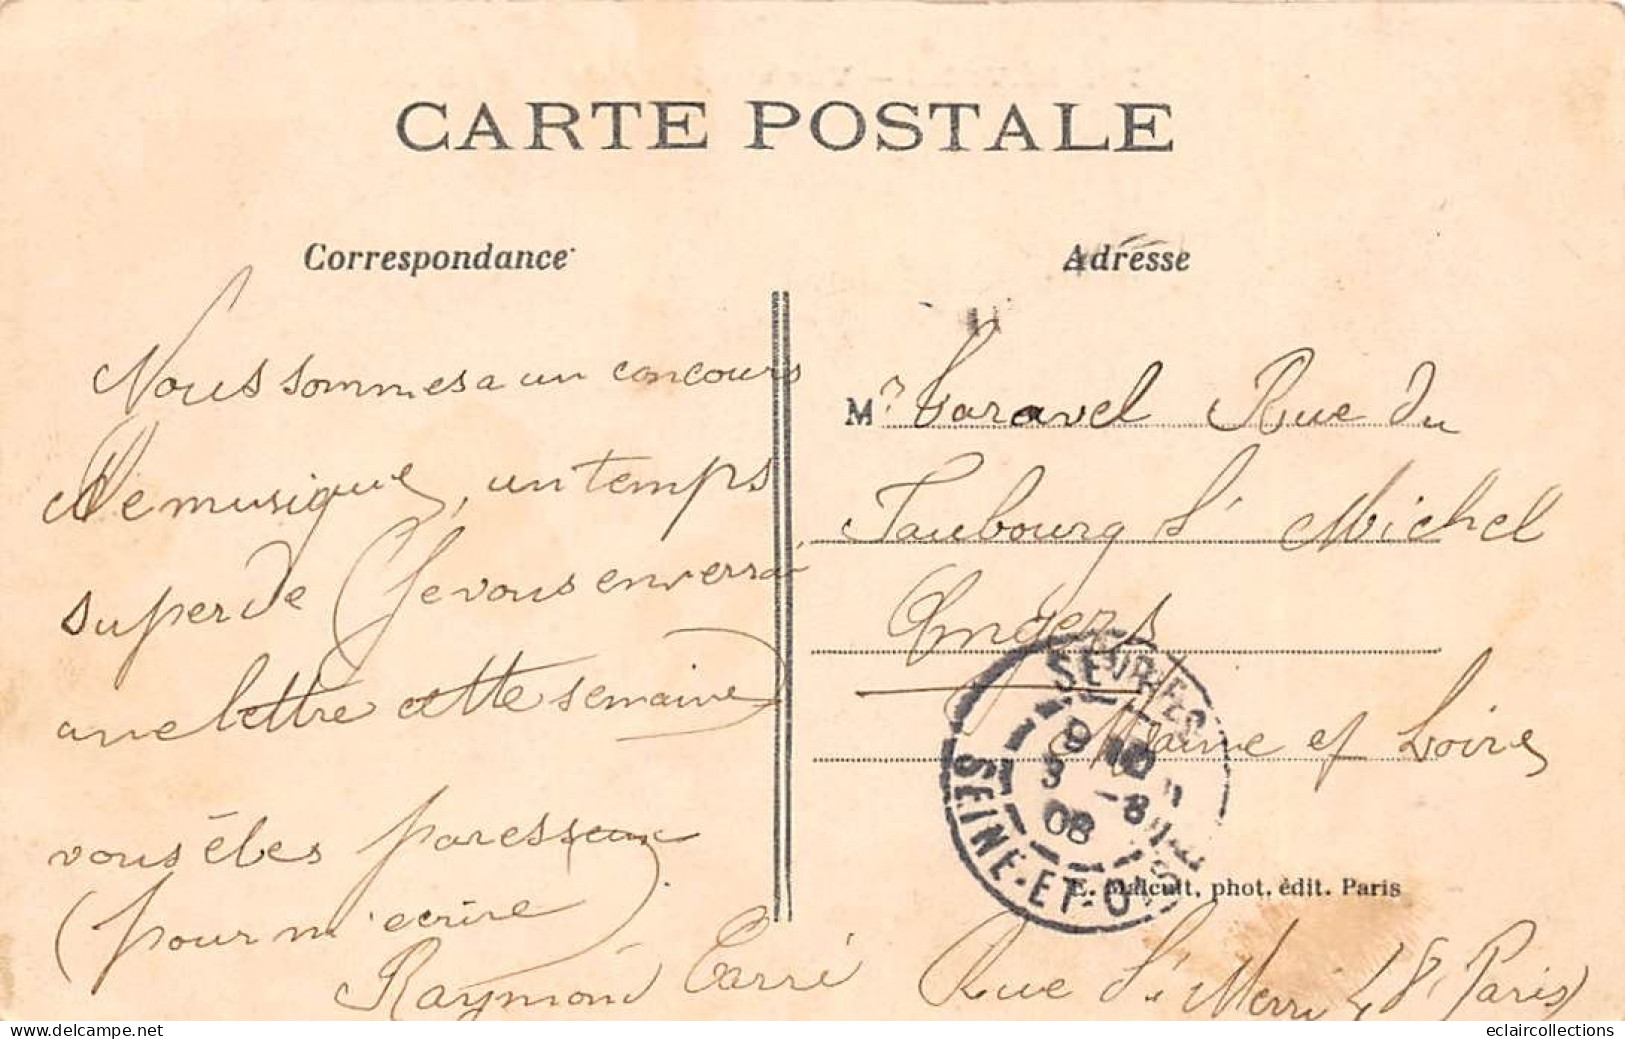 CARTE POSTALE
Correspondance
Adresse
Nous sommes a un concours
de musique, un temps
superde Je vous enverrai
une lettre cette semaine
vous êtes paresseux
(pour m'ecrire)
Raymond Carré
Mr Varavel Rue du
Faubourg St Michel
Angers
Maine et Loire
SEVRES
9
3 -8
08
SEINE-ET-OISE
E. Malcuit, phot. édit. Paris
Rue St Merri 48 Paris
www.delcampe.net
eclaircollections